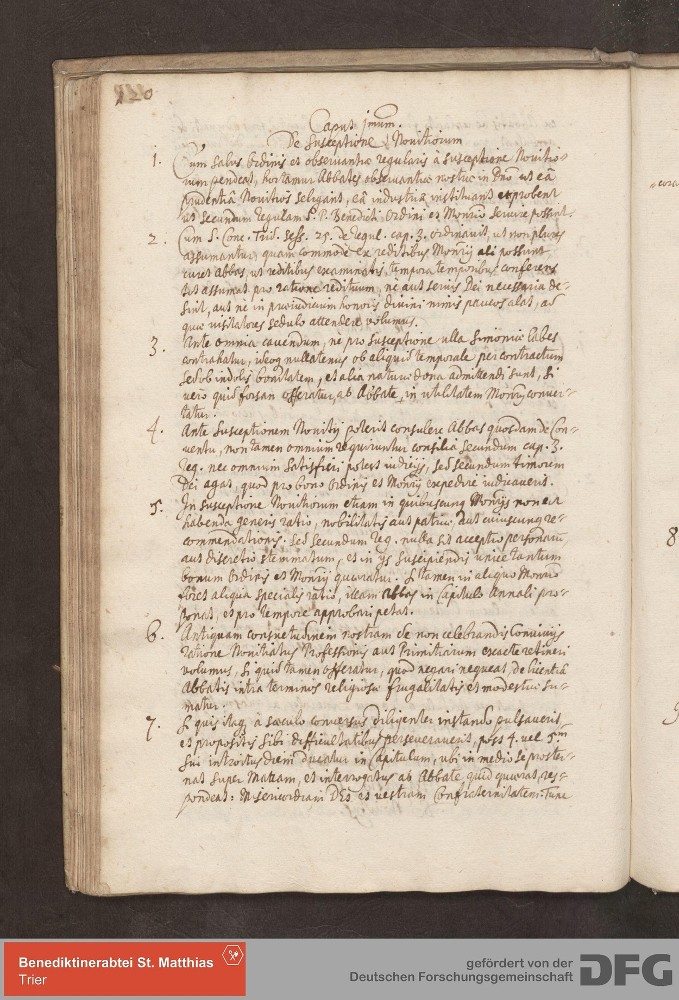 120
Caput 1mum.
De Susceptione Novitiorum
1. Cum salus Ordinis et observantiæ regularis à susceptione Novitio-
rum pendeat, hortamur Abbates observantiæ nostræ in Dno ut eâ
prudentiâ Novitios seligant, eâ industriâ instituant et probent
ut secundum regulam S. P. Benedicti Ordini et Monrio servire possint.
2. Cum S. Conc. Trid. Sess. 25. de regul. cap. 3. ordinavit, ut non plures
assumantur, quam commode ex reditibus Monrij ali possunt
curet Abbas, ut reditibus examinatis, tempora temporibus conferens
tot assumat pro ratione redituum, ne aut servis Dei necessaria de-
sint, aut ne in præiudicium honoris divini nimis paucos alat, ad
quæ visitatores sedulo attendere volumus.
3. Ante omnia cavendum, ne pro susceptione ulla Simoniæ labes
contrahatur, ideoq nullatenus ob aliquid temporale per contractum
sed ob indolis bonitatem, et alia naturæ dona admittendi sunt, si
vero quid forsan offeratur, ab Abbate, in utilitatem Monrij conver-
tatur.
4. Ante susceptionem Novitij poterit consulere Abbas quosdam de Con-
ventu, non tamen omnium requiruntur consilia secundum cap. 3.
reg. nec omnium satisfieri potest iudicijs, sed secundum timorem
Dei agat, quod pro bono Ordinis et Monrij expedire iudicaverit.
5. In susceptione Novitiorum etiam in quibuscunq Monrijs non est
habenda generis ratio, nobilitatis aut patriæ, aut cuiuscunq re-
commendationis. sed secundum reg. nulla sit acceptio personarum
aut discretio stemmatum, et in ijs suscipiendis unice tantum
bonum Ordinis et Monrij quæratur. Si tamen in aliquo Monrio
foret aliqua specialis ratio, illam Abbas in Capitulo Annali pro-
ponat, et pro tempore approbari petat.
6. Antiquam consuetudinem nostram de non celebrandis Convivijs
ratione Novitiatus Professionis aut Primitiarum exacte retineri
volumus, si quid tamen offeratur, quod negari nequeat, de licentiâ
Abbatis intra terminos religiosæ frugalitatis et modestiæ su-
matur.
7. Si quis itaq à sæculo conversus diligenter instando pulsaverit,
et propositis sibi difficultatibus perseveraverit, post 4. vel 5.tm
sui introitus diem ducatur in Capitulum, ubi in medio se proster-
nat super Mattam, et interrogatus ab Abbate quid quærat, res-
pondeat: Misericordiam Dei et vestram Confraternitatem. Tunc
8
9
Benediktinerabtei St. Matthias
Trier
gefördert von der
Deutschen Forschungsgemeinschaft
DFG